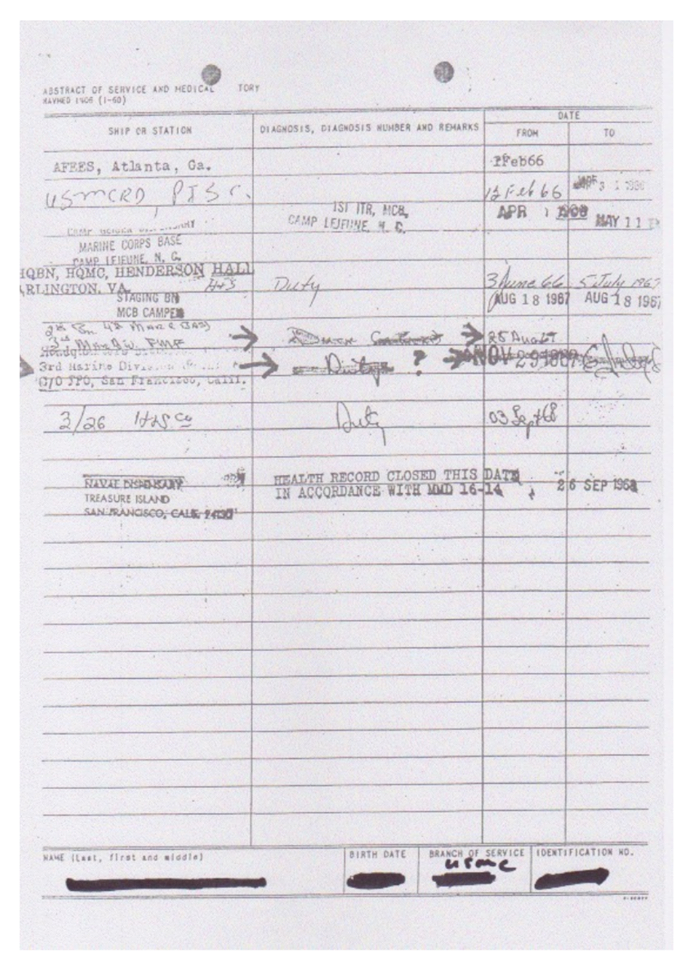 ABSTRACT OF SERVICE AND MEDICAL TORY
NAVMED 1406 (1-60)
SHIP OR STATION
DIAGNOSIS, DIAGNOSIS NUMBER AND REMARKS
DATE
FROM
TO
AFRES, Atlanta, Ga.
Feb66
USMCRD PISC.
12 Feb 66
1ST ITR, MCB,
CAMP LEJEUNE, N. C.
APR
MAY 11
CAMP
MARINE CORPS BASE
CAMP LEJEUNE, N. C.
HQBN, HQMC, HENDERSON HALL
RLINGTON, VA. H+S
Duty
3 June 66
5 July 1967
STAGING BN
MCB CAMPEN
AUG 18 1967
AUG 18 1967
2nd Bn 4th Mar
3rd MarDiv FMF
25 Aug
3rd Marine Division
C/O FPO, San Francisco, Calif.
Duty ?
NOV
3/26 H+S Co
Duty
03 Sept 68
NAVAL DISPENSARY
TREASURE ISLAND
SAN FRANCISCO, CALIF.
HEALTH RECORD CLOSED THIS DATE
IN ACCORDANCE WITH MMD 16-14
26 SEP 1968
NAME (Last, first and middle)
BIRTH DATE
BRANCH OF SERVICE
USMC
IDENTIFICATION NO.